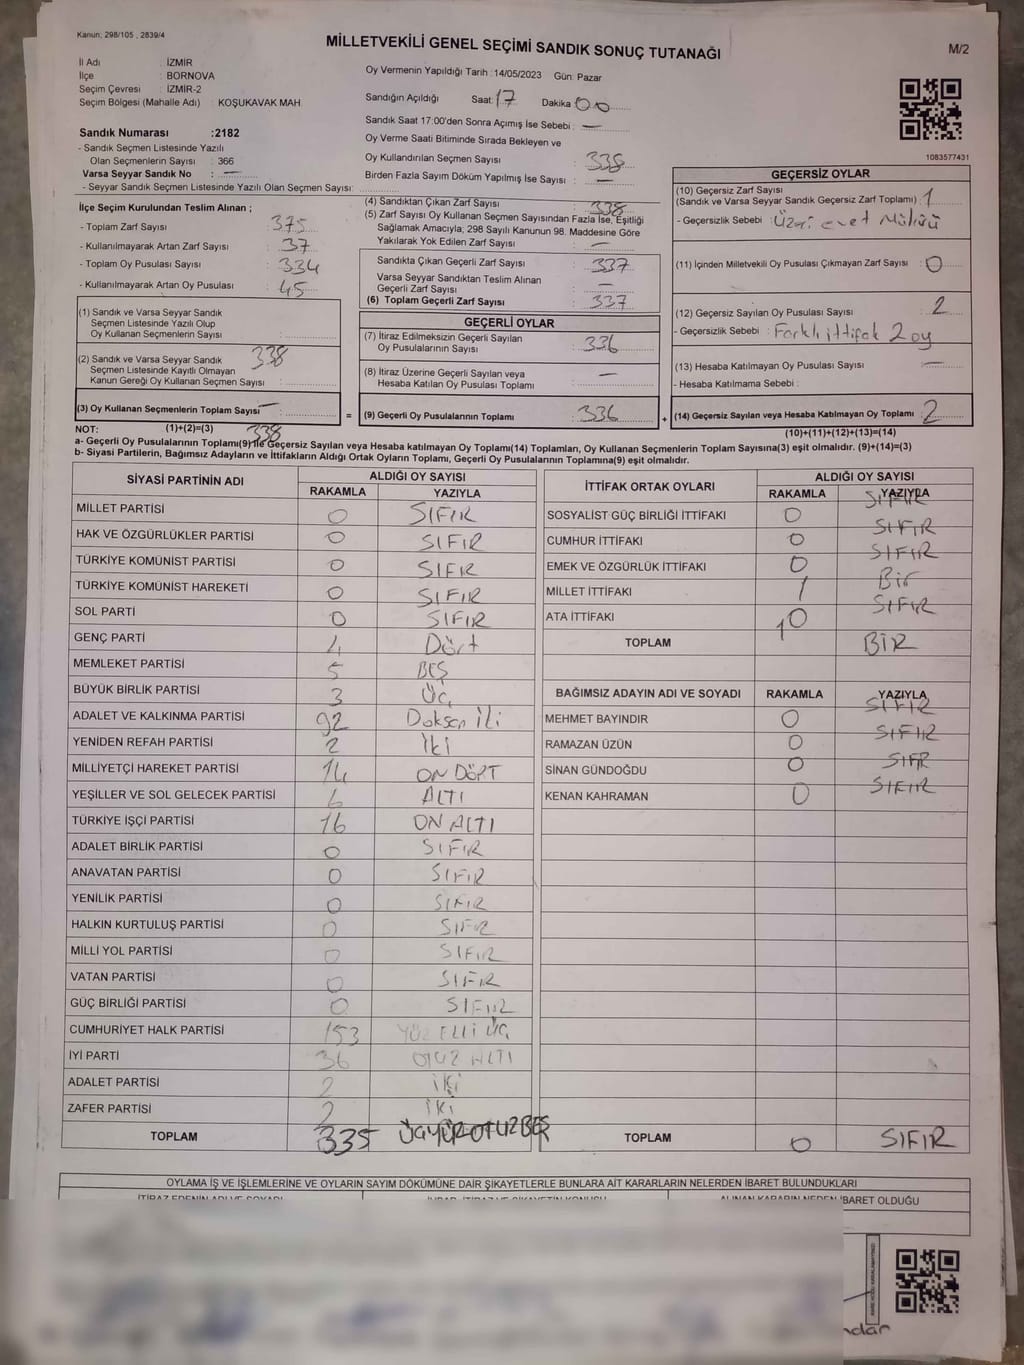 Kanun: 298/105 , 2839/4
MİLLETVEKİLİ GENEL SEÇİMİ SANDIK SONUÇ TUTANAĞI
M/2
İl Adı : İZMİR
İlçe : BORNOVA
Seçim Çevresi : İZMİR-2
Seçim Bölgesi (Mahalle Adı) : KOŞUKAVAK MAH.
Sandık Numarası :2182
- Sandık Seçmen Listesinde Yazılı
Olan Seçmenlerin Sayısı : 366
Varsa Seyyar Sandık No : —
- Seyyar Sandık Seçmen Listesinde Yazılı Olan Seçmen Sayısı:
Oy Vermenin Yapıldığı Tarih :14/05/2023 Gün: Pazar
Sandığın Açıldığı Saat: 17 Dakika 00
Sandık Saat 17:00'den Sonra Açımış İse Sebebi : —
Oy Verme Saati Bitiminde Sırada Bekleyen ve
Oy Kullandırılan Seçmen Sayısı : 338
Birden Fazla Sayım Döküm Yapılmış İse Sayısı : —
1083577431
İlçe Seçim Kurulundan Teslim Alınan ;
- Toplam Zarf Sayısı : 375
- Kullanılmayarak Artan Zarf Sayısı : 37
- Toplam Oy Pusulası Sayısı : 334
- Kullanılmayarak Artan Oy Pusulası : 45
(1) Sandık ve Varsa Seyyar Sandık
Seçmen Listesinde Yazılı Olup
Oy Kullanan Seçmenlerin Sayısı :
(2) Sandık ve Varsa Seyyar Sandık 338
Seçmen Listesinde Kayıtlı Olmayan
Kanun Gereği Oy Kullanan Seçmen Sayısı :
(3) Oy Kullanan Seçmenlerin Toplam Sayısı —
(4) Sandıktan Çıkan Zarf Sayısı : 338
(5) Zarf Sayısı Oy Kullanan Seçmen Sayısından Fazla İse, Eşitliği
Sağlamak Amacıyla; 298 Sayılı Kanunun 98. Maddesine Göre
Yakılarak Yok Edilen Zarf Sayısı : —
Sandıkta Çıkan Geçerli Zarf Sayısı : 337
Varsa Seyyar Sandıktan Teslim Alınan
Geçerli Zarf Sayısı : —
(6) Toplam Geçerli Zarf Sayısı : 337
GEÇERLİ OYLAR
(7) İtiraz Edilmeksizin Geçerli Sayılan
Oy Pusulalarının Sayısı : 336
(8) İtiraz Üzerine Geçerli Sayılan veya
Hesaba Katılan Oy Pusulası Toplamı : —
= (9) Geçerli Oy Pusulalarının Toplamı : 336
GEÇERSİZ OYLAR
(10) Geçersiz Zarf Sayısı
(Sandık ve Varsa Seyyar Sandık Geçersiz Zarf Toplamı) : 1
- Geçersizlik Sebebi :
(11) İçinden Milletvekili Oy Pusulası Çıkmayan Zarf Sayısı : 0
(12) Geçersiz Sayılan Oy Pusulası Sayısı : 2
- Geçersizlik Sebebi : Farklı ittifak 2 oy
(13) Hesaba Katılmayan Oy Pusulası Sayısı : —
- Hesaba Katılmama Sebebi :
+ (14) Geçersiz Sayılan veya Hesaba Katılmayan Oy Toplamı : 2
NOT: (1)+(2)=(3) 338
(10)+(11)+(12)+(13)=(14)
a- Geçerli Oy Pusulalarının Toplamı(9) ile Geçersiz Sayılan veya Hesaba katılmayan Oy Toplamı(14) Toplamları, Oy Kullanan Seçmenlerin Toplam Sayısına(3) eşit olmalıdır. (9)+(14)=(3)
b- Siyasi Partilerin, Bağımsız Adayların ve İttifakların Aldığı Ortak Oyların Toplamı, Geçerli Oy Pusulalarının Toplamına(9) eşit olmalıdır.
SİYASİ PARTİNİN ADI ALDIĞI OY SAYISI
RAKAMLA YAZIYLA
MİLLET PARTİSİ 0 SIFIR
HAK VE ÖZGÜRLÜKLER PARTİSİ 0 SIFIR
TÜRKİYE KOMÜNİST PARTİSİ 0 SIFIR
TÜRKİYE KOMÜNİST HAREKETİ 0 SIFIR
SOL PARTİ 0 SIFIR
GENÇ PARTİ 4 Dört
MEMLEKET PARTİSİ 5 BEŞ
BÜYÜK BİRLİK PARTİSİ 3 Üç
ADALET VE KALKINMA PARTİSİ 92 Doksan İki
YENİDEN REFAH PARTİSİ 2 İki
MİLLİYETÇİ HAREKET PARTİSİ 14 ON DÖRT
YEŞİLLER VE SOL GELECEK PARTİSİ 6 ALTI
TÜRKİYE İŞÇİ PARTİSİ 16 ON ALTI
ADALET BİRLİK PARTİSİ 0 SIFIR
ANAVATAN PARTİSİ 0 SIFIR
YENİLİK PARTİSİ 0 SIFIR
HALKIN KURTULUŞ PARTİSİ 0 SIFIR
MİLLİ YOL PARTİSİ 0 SIFIR
VATAN PARTİSİ 0 SIFIR
GÜÇ BİRLİĞİ PARTİSİ 0 SIFIR
CUMHURİYET HALK PARTİSİ 153 YÜZ ELLİ ÜÇ
İYİ PARTİ 36 OTUZ ALTI
ADALET PARTİSİ 2 İKİ
ZAFER PARTİSİ 2 İKİ
TOPLAM 335 ÜÇYÜZ OTUZ BEŞ
İTTİFAK ORTAK OYLARI ALDIĞI OY SAYISI
RAKAMLA YAZIYLA
SOSYALİST GÜÇ BİRLİĞİ İTTİFAKI 0 SIFIR
CUMHUR İTTİFAKI 0 SIFIR
EMEK VE ÖZGÜRLÜK İTTİFAKI 0 SIFIR
MİLLET İTTİFAKI 1 Bir
ATA İTTİFAKI 0 SIFIR
TOPLAM 1 BİR
BAĞIMSIZ ADAYIN ADI VE SOYADI RAKAMLA YAZIYLA
MEHMET BAYINDIR 0 SIFIR
RAMAZAN ÜZÜN 0 SIFIR
SİNAN GÜNDOĞDU 0 SIFIR
KENAN KAHRAMAN 0 SIFIR
TOPLAM 0 SIFIR
OYLAMA İŞ VE İŞLEMLERİNE VE OYLARIN SAYIM DÖKÜMÜNE DAİR ŞİKAYETLERLE BUNLARA AİT KARARLARIN NELERDEN İBARET BULUNDUKLARI
İTİRAZ EDENİN ADI VE SOYADI
ALINAN KARARIN NEDEN İBARET OLDUĞU